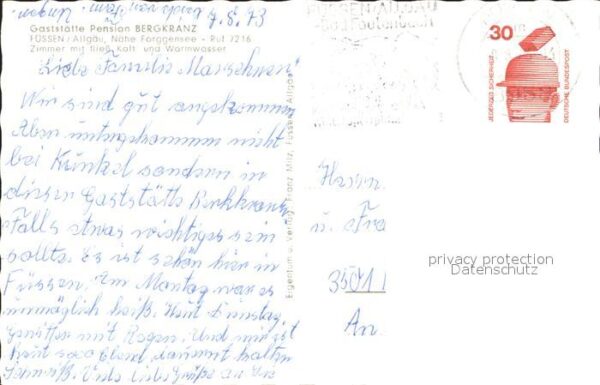 7. 8. 73
Gaststätte Pension BERGKRANZ
FÜSSEN/Allgäu, Nähe Forggensee - Ruf 7216
Zimmer mit fließ. Kalt- und Warmwasser
Liebe Familie
Wir sind gut angekommen
Aber untergekommen nicht
bei Künkel sondern in
dieser Gaststätte Berkkranz
Falls etwas wichtiges sein
sollte. Es ist schön hier in
Füssen. Am Montag war es
unmöglich heiß. Heut Dienstag
Gewitter mit Regen. Und mir ist
heut so elend
Viele liebe Grüße an
Eigentum u. Verlag: Franz Milz, Füssen/Allgäu
FÜSSEN IM ALLGÄU
30
JEDERZEIT SICHERHEIT
DEUTSCHE BUNDESPOST
Herrn
u. Fra
3501
An.
privacy protection
Datenschutz